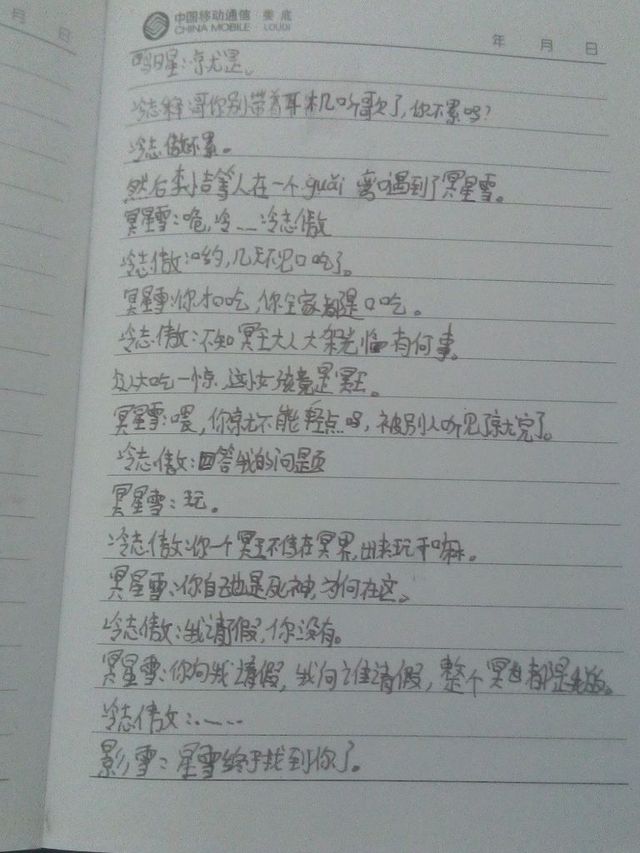 月 日
中国移动通信 娄底
CHINA MOBILE LOUDI
年 月 日
鸣日星:就是。
冷志释哥你别带着耳机听歌了,你不累吗?
冷志傲:不累。
然后李喆等人在一个guǎi 离遇到了冥星雪。
冥星雪:咦,冷……冷志傲
冷志傲:哟,几天不见口吃了。
冥星雪:你才口吃,你全家都是口吃。
冷志傲:不知冥王大人大架光临有何事。
众人大吃一惊,这小女孩竟是冥王。
冥星雪:喂,你就不能轻点吗,被别人听见了就完了。
冷志傲:回答我的问题
冥星雪:玩。
冷志傲:你一个冥王不待在冥界,出来玩干嘛。
冥星雪:你自己也是死神,为何在这。
冷志傲:我请假,你没有。
冥星雪:你向我请假,我向谁请假,整个冥界都是我
冷志傲:……
影雪:星雪终于找到你了。